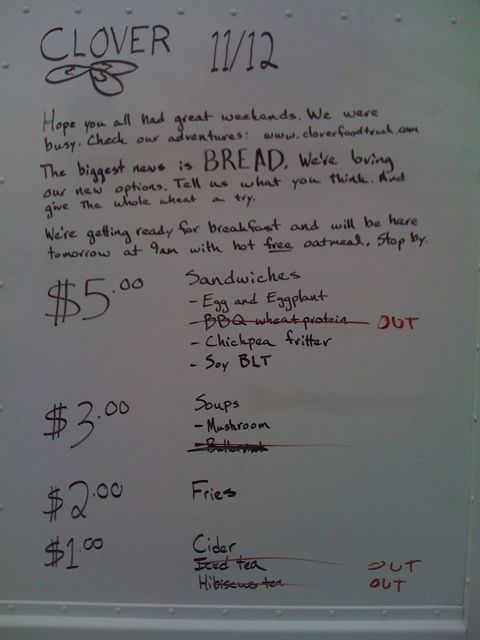 CLOVER 11/12
Hope you all had great weekends. We were
busy. Check our adventures: www.cloverfoodtruck.com
The biggest news is BREAD. We're loving
our new options. Tell us what you think. And
give the whole wheat a try.
We're getting ready for breakfast and will be here
tomorrow at 9am with hot free oatmeal. Stop by.
$5.00 Sandwiches
- Egg and Eggplant
- BBQ wheat protein OUT
- Chickpea fritter
- Soy BLT
$3.00 Soups
- Mushroom
- Butternut
$2.00 Fries
$1.00 Cider
Iced tea OUT
Hibiscus tea OUT